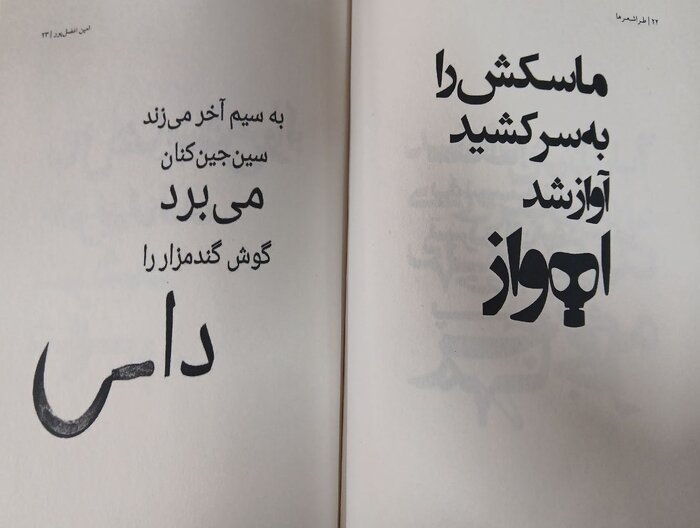 ۲۲ | طراشعرها
ماسکش را
به سر کشید
آواز شد
اهواز
امین افضل‌پور | ۲۳
به سیم آخر می‌زند
سین‌جین‌کنان
می‌برد
گوش گندمزار را
داس